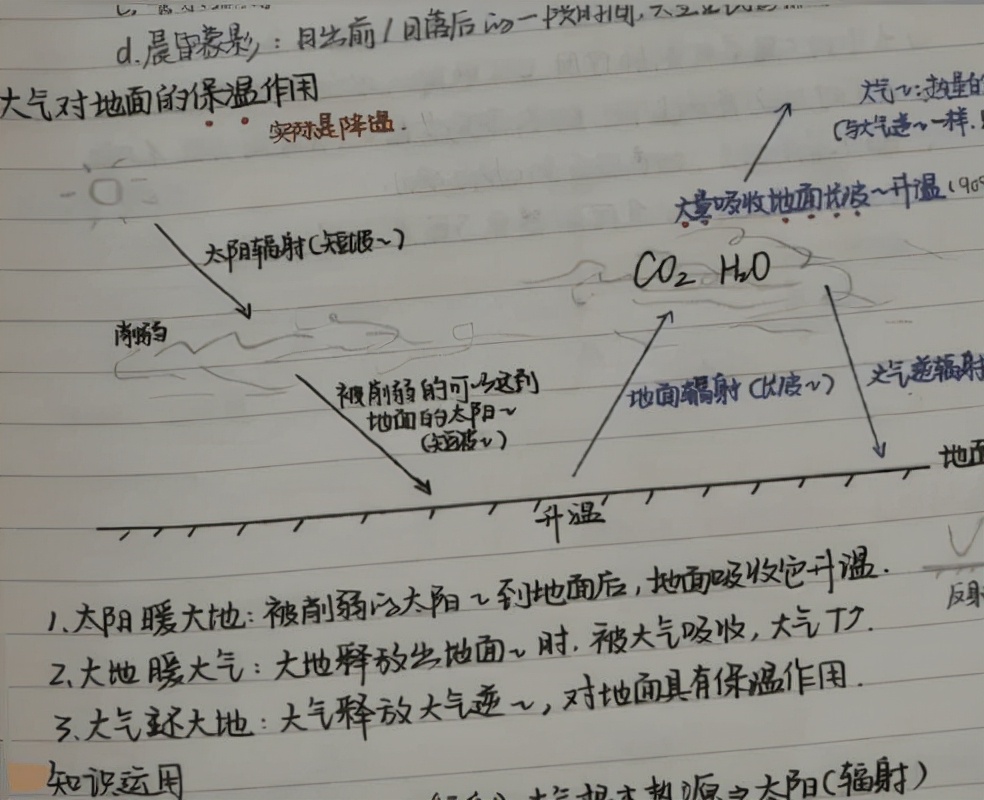 d.晨昏蒙影：日出前/日落后的一段时间,
大气对地面的保温作用
实际是降温.
大气~:热量
(与大气逆~一样.
大量吸收地面长波~升温(90
太阳辐射(短波~)
CO₂ H₂O
削弱
被削弱的可以达到
地面的太阳~
(短波~)
地面辐射(长波~)
大气逆辐射
地面
升温
反射
1.太阳暖大地:被削弱的太阳~到地面后,地面吸收它升温.
2.大地暖大气:大地释放出地面~时.被大气吸收,大气T↗.
3.大气还大地:大气释放大气逆~,对地面具有保温作用.
知识运用
大气根本热源⇒太阳(辐射)